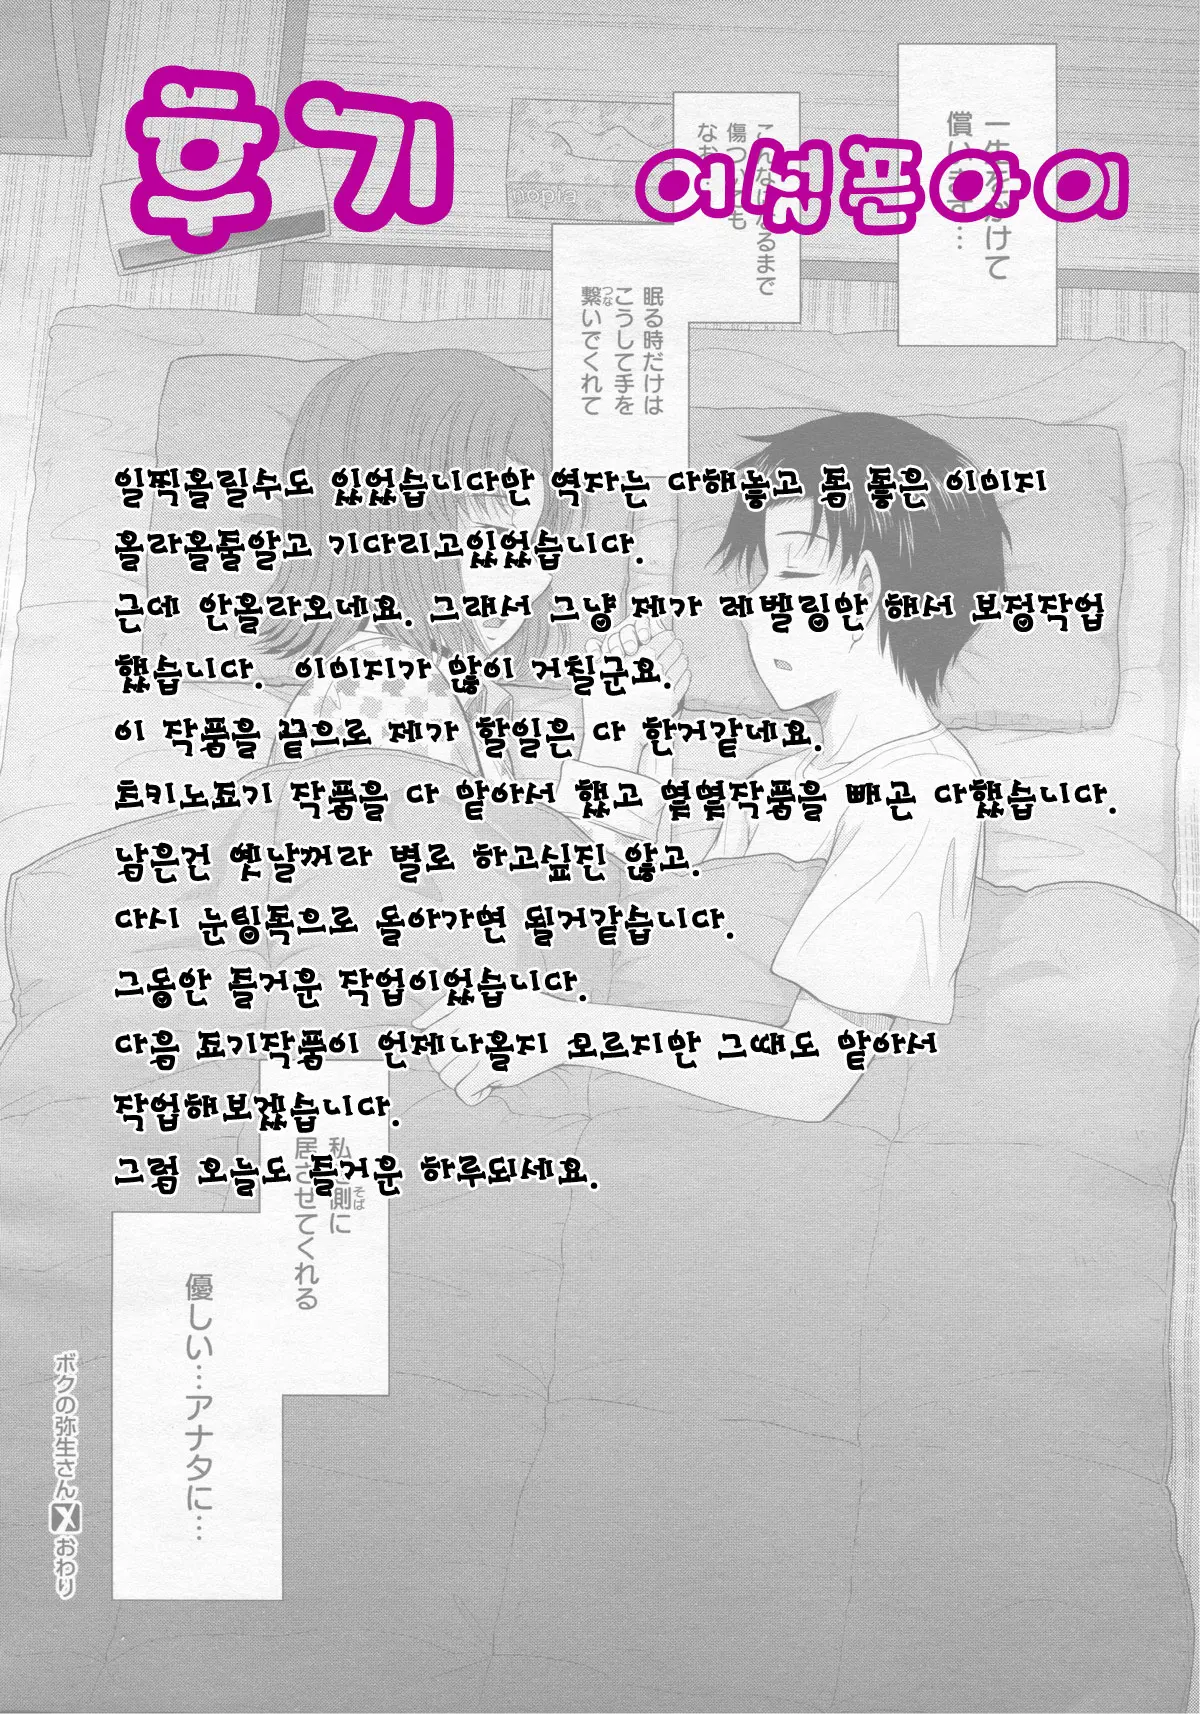 후기
어넛픈아이
일찍올릴수도 있었습니다만 역자는 다해놓고 좀 좋은 이미지
올라올줄알고 기다리고있었습니다.
근데 안올라오네요. 그래서 그냥 제가 레벨링만 해서 보정작업
했습니다. 이미지가 많이 거칠군요.
이 작품을 끝으로 제가 할일은 다 한거같네요.
츠키노죠기 작품을 다 맡아서 했고 몇몇작품을 빼곤 다했습니다.
남은건 옛날꺼라 별로 하고싶진 않고.
다시 눈팅족으로 돌아가면 될거같습니다.
그동안 즐거운 작업이었습니다.
다음 죠기작품이 언제나올지 모르지만 그때도 맡아서
작업해보겠습니다.
그럼 오늘도 즐거운 하루되세요.
一生をかけて
償います…
こんなになるまで
傷ついても
なお…
眠る時だけは
こうして手を
繋いでくれて
つな
nopia
私を側に
そば
居させてくれる
優しい…アナタに…
ボクの弥生さんXおわり